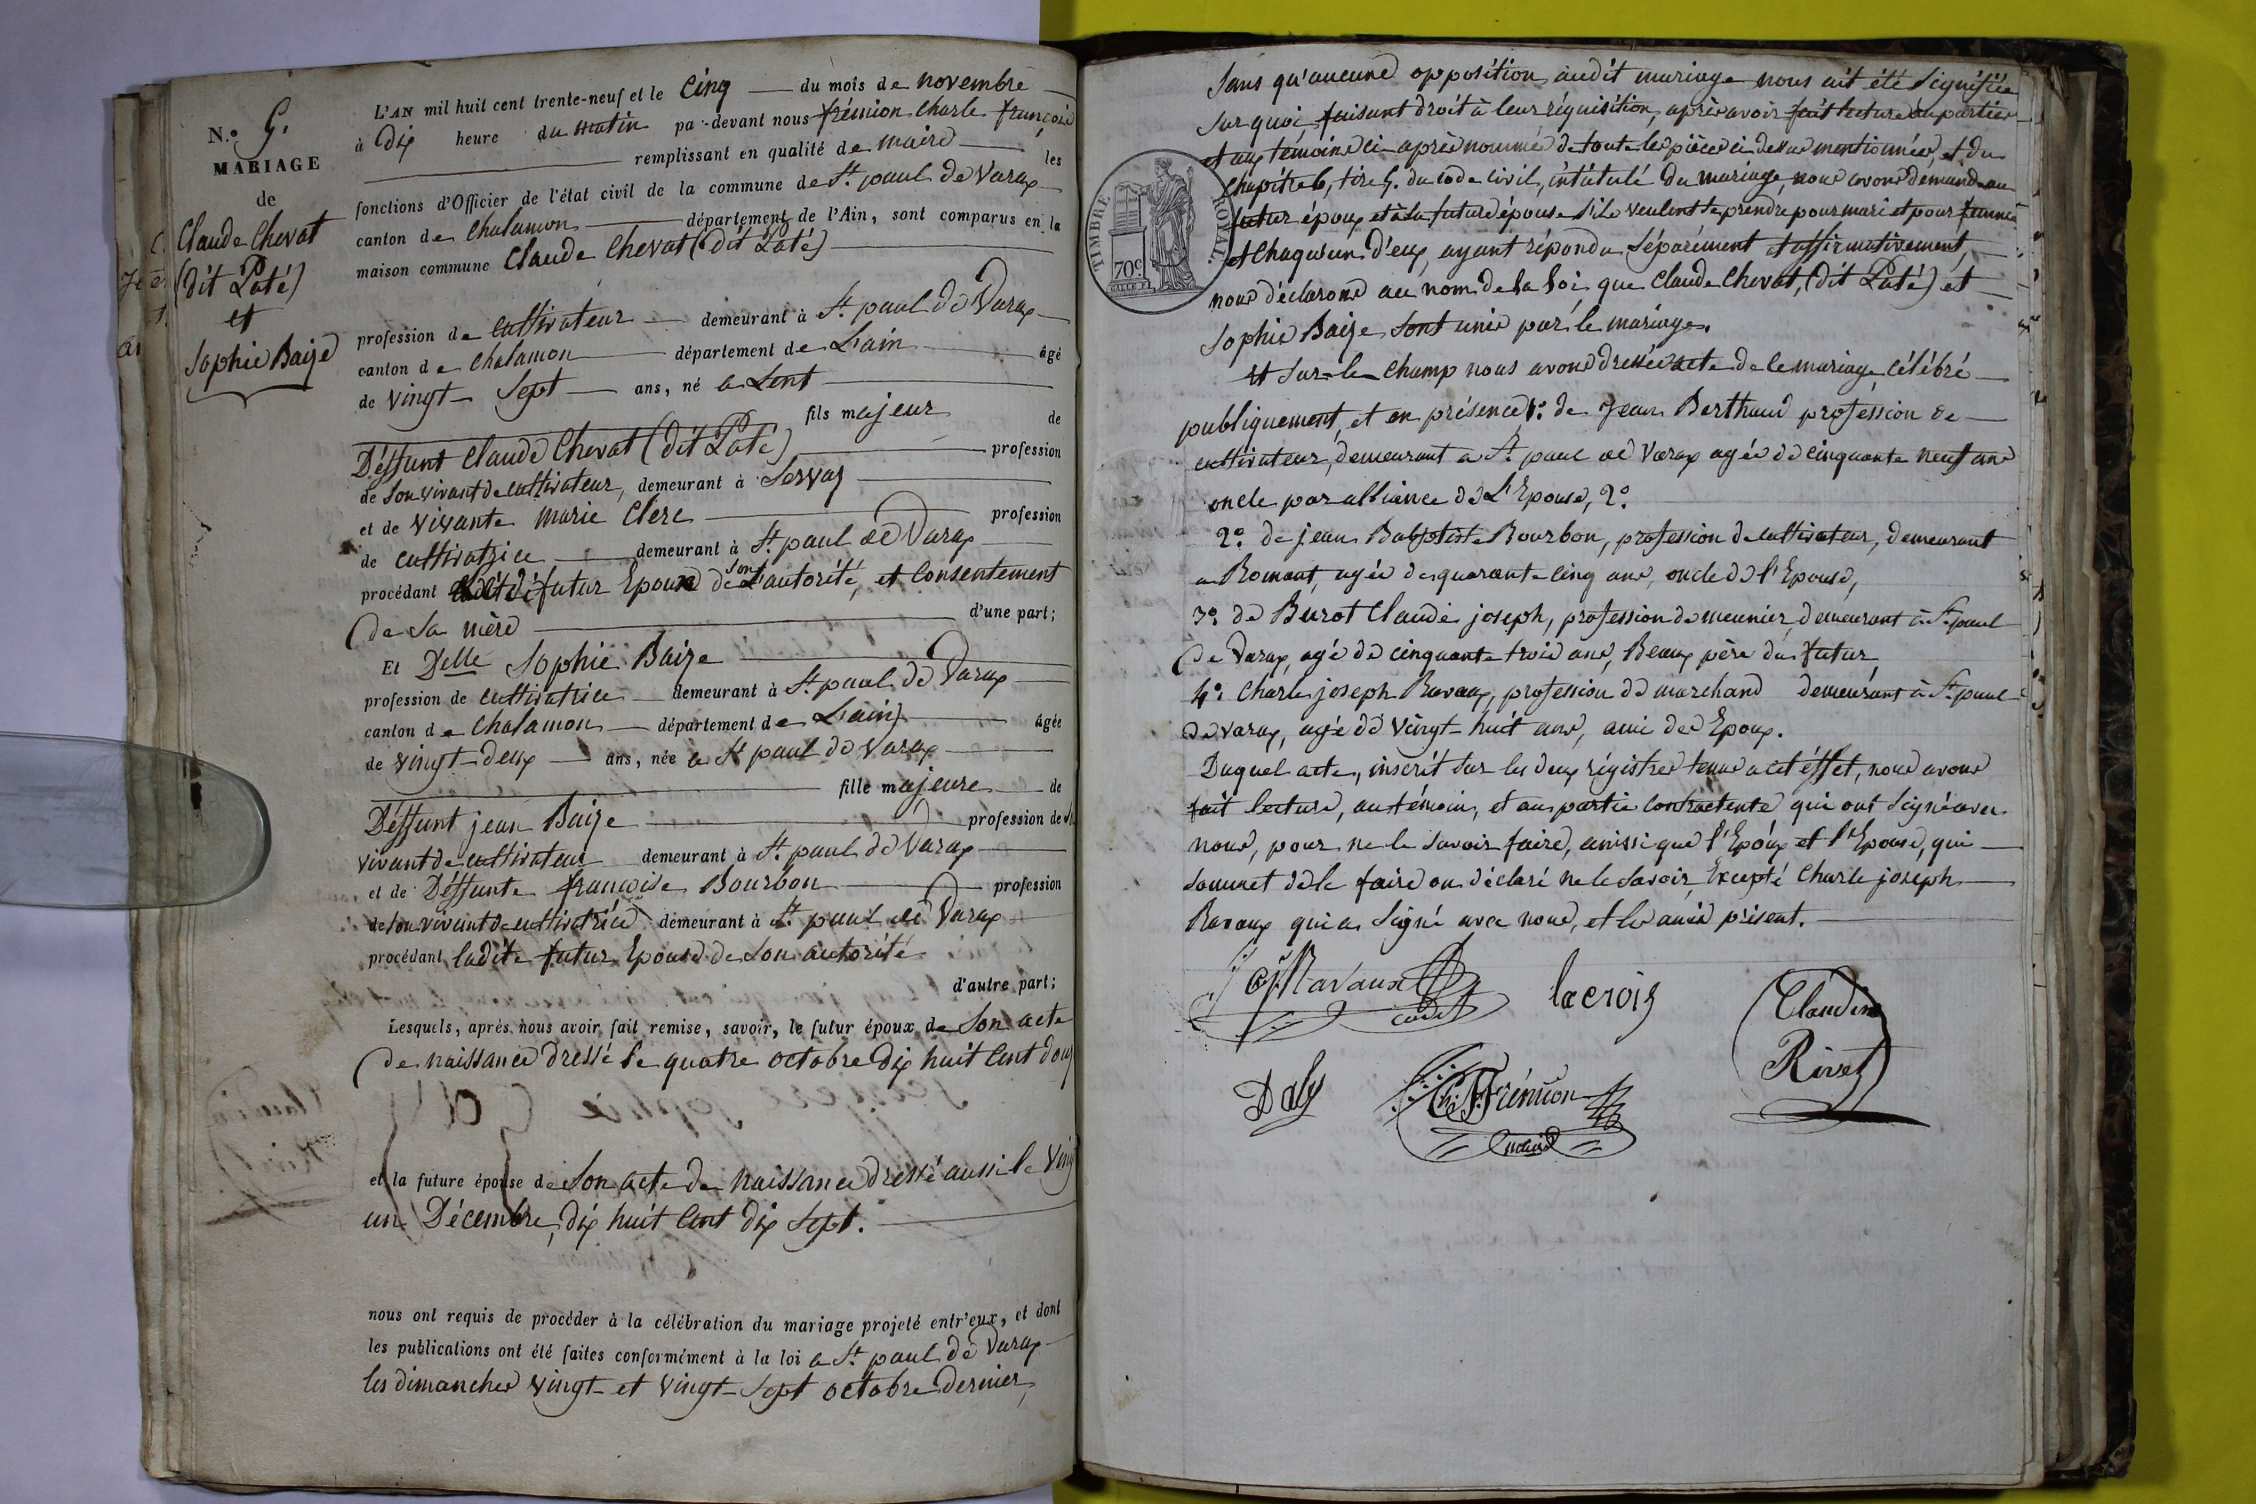 N.o 5.
MARIAGE
de
Claude Chevat
(dit Paté)
et
Sophie Baize
L'AN mil huit cent trente-neuf et le Cinq du mois de novembre
à Dix heure du matin par-devant nous frémion Charle françois
remplissant en qualité de maire les
fonctions d'Officier de l'état civil de la commune de St. paul de Varax
canton de Chalamon département de l'Ain, sont comparus en la
maison commune Claude Chevat (dit Paté)
profession de cultivateur demeurant à St. paul de Varax
canton de Chalamon département de L'ain âgé
de vingt Sept ans, né a Lent
fils majeur de
Déffunt Claude Chevat (dit Paté) profession
de Son vivant de cultivateur, demeurant à Servas
et de vivante marie Clerc profession
de cultivatrice demeurant à St. paul de Varax
procédant futur Epoux de Son autorité, et Consentement
de Sa mère d'une part;
Et Delle Sophie Baize
profession de cultivatrice demeurant à St. paul de Varax
canton de Chalamon département de L'ain âgée
de vingt-deux ans, née a St paul de Varax
fille majeure de
Déffunt jean Baize profession de
vivant de cultivateur demeurant à St. paul de Varax
et de Déffunte françoise Bourbon profession
de Son vivant de cultivatrice demeurant à St. paul de Varax
procédant ladite futur Epouse de Son autorité
d'autre part;
Lesquels, après nous avoir fait remise, savoir, le futur époux de Son acte
de naissance dressé le quatre octobre dix huit Cent douze
et la future épouse de Son acte de naissance dressé aussi le Vingt
un Décembre, dix huit Cent dix Sept.
nous ont requis de procéder à la célébration du mariage projeté entr'eux, et dont
les publications ont été faites conformément à la loi a St. paul de Varax
les dimanches vingt et vingt-Sept octobre dernier,
TIMBRE ROYAL
70c
Sans qu'aucune opposition audit mariage nous ait été Signifiée
Sur quoi, faisant droit à leur réquisition, après avoir fait lecture aux parties
et aux temoins ci-après nommés de toute les pièces ci dessus mentionnées, et du
Chapitre 6, tire 5. du Code Civil, intitulé Du mariage, nous avons demandé au
futur époux et à la future épouse S'ils veulent Se prendre pour mari et pour femme
et Chaqu'un d'eux, ayant répondu Séparément et affirmativement,
nous déclarons au nom de la Loi, que Claude Chevat, (dit Paté) et
Sophie Baize Sont unis par le mariage.
et Sur-le Champ nous avons dressée acte de ce mariage, Célébré
publiquement, et en présence, 1o. de jean Berthaud profession de
cultivateur, demeurant a St. paul de Varax agée de cinquante neuf ans
oncle par alliance de L'Epouse, 2o.
2o. de jean Babptiste Bourbon, profession de cultivateur, demeurant
a Romant, agée de quarante cinq ans, oncle de l'Epouse,
3o. de Burot Claude joseph, profession de meunier, demeurant à St. paul
de Varax, agé de cinquante trois ans, Beaux père du futur,
4o. Charle joseph Ravaux, profession de marchand demeurant à St. paul
de varax, agée de vingt-huit ans, ami des Epoux.
Duquel acte, inscrit Sur les deux régistres tenus a cet éffet, nous avons
fait lecture, aux témoins, et aux partie Contractente, qui ont Signé avec
nous, pour ne le Savoir faire, ainssi que l'Epoux et l'Epouse, qui
Sommet de le faire on déclaré ne le Savoir, Excepté Charle joseph
Ravaux qui a Signé avec nous, et les amis présent.
Cj Ravaux
cadet
lacroix
Claudine
Rivet
Daly
Ch. F. Frémion
maire